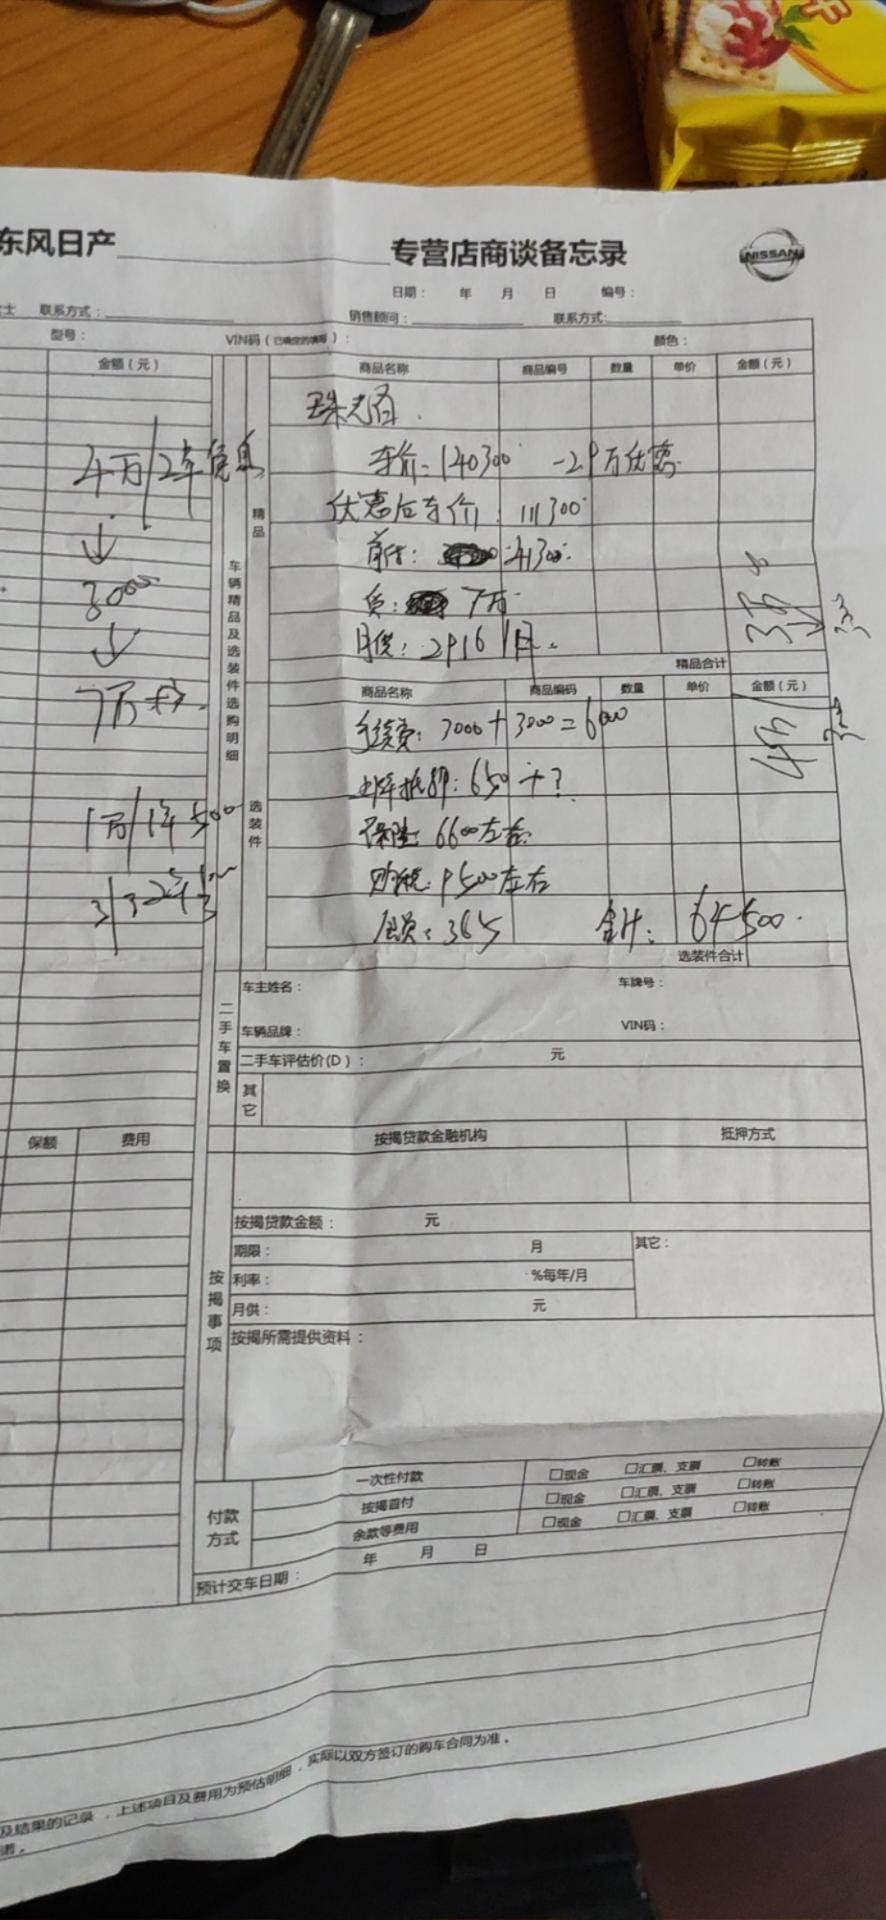 东风日产
专营店商谈备忘录
NISSAN
日期： 年 月 日 编号：
士 联系方式： 销售顾问： 联系方式：
型号： VIN码（已确定的填写）： 颜色：
金额（元）
4万/2年免息
3000
7万
1万/1年500
车辆精品及选装件选购明细
精品
商品名称 商品编号 数量 单价 金额（元）
珠光白
车价：140300 -2.9万优惠
优惠后车价：111300
首付：41300
贷：7万
月供：2916/月
精品合计
选装件
商品名称 商品编码 数量 单价 金额（元）
手续费：3000+3000=6000
上牌抵押：650+?
保险：6600左右
购税：9500左右
365
合计：64500
选装件合计
二手车置换
车主姓名： 车牌号：
车辆品牌： VIN码：
二手车评估价(D)： 元
其它
保额 费用
按揭事项
按揭贷款金融机构 抵押方式
按揭贷款金额： 元
期限： 月 其它：
利率： %每年/月
月供： 元
按揭所需提供资料：
付款方式
一次性付款 □现金 □汇票、支票 □转账
按揭首付 □现金 □汇票、支票 □转账
余款等费用 □现金 □汇票、支票 □转账
预计交车日期： 年 月 日
及结果的记录，上述项目及费用为预估明细，实际以双方签订的购车合同为准。